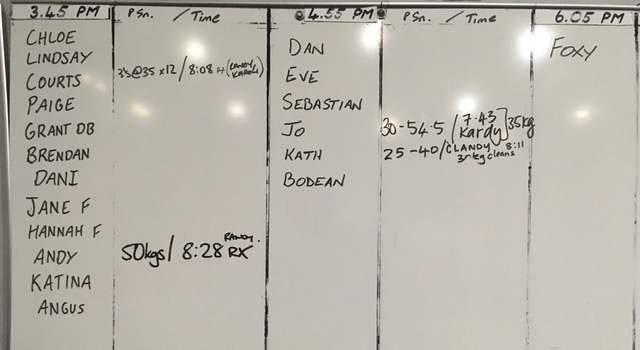 3.45 PM PSn. / Time
CHLOE
LINDSAY
COURTS 3's@35 x12 / 8:08
PAIGE
GRANT DB
BRENDAN
DANI
JANE F
HANNAH F
ANDY 50kgs / 8:28 RX RANDY.
KATINA
ANGUS
4.55 PM PSn. / Time
DAN
EVE
SEBASTIAN
JO 30-54.5 / 7.43 Kardy 35kg
KATH 25-40 / CLANDY 8:11
cleans
BODEAN
6.05 PM
FOXY